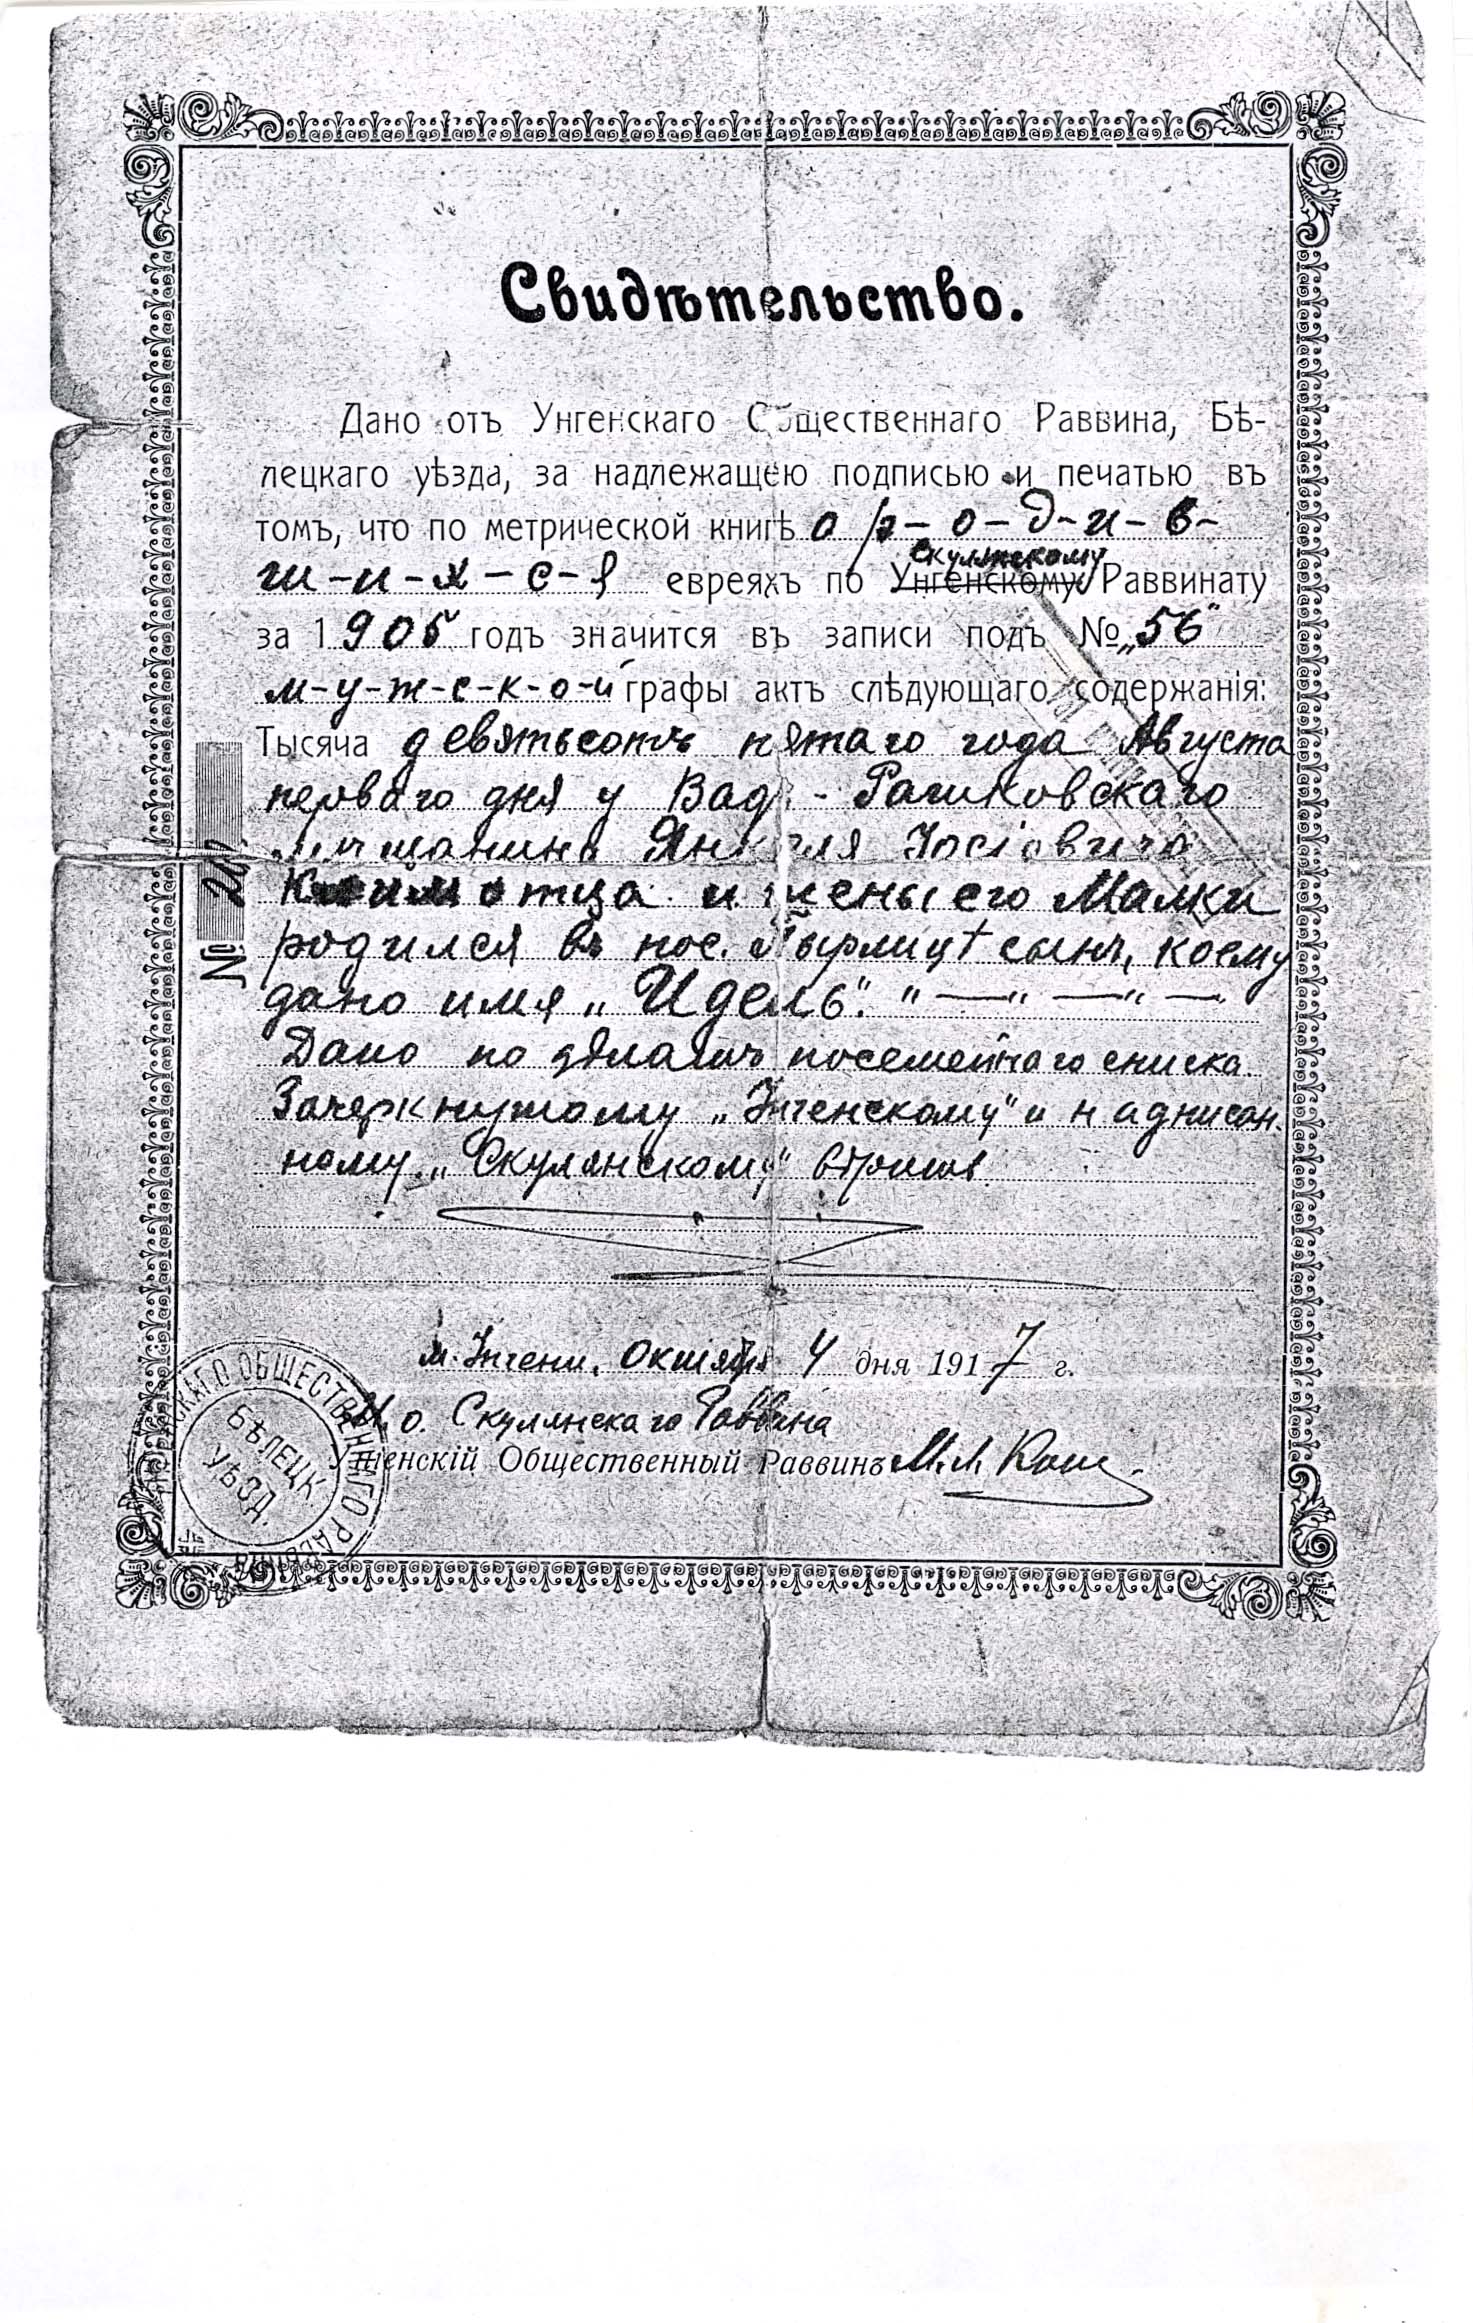 Свидѣтельство.
Дано отъ Унгенскаго Общественнаго Раввина, Бѣ-
лецкаго уѣзда, за надлежащею подписью и печатью въ
томъ, что по метрической книгѣ о р-о-д-и-в-
ш-и-х-с-я евреяхъ по Унгенскому Скулянскому Раввинату
за 1905 годъ значится въ записи подъ № „56"
м-у-ж-с-к-о-й графы актъ слѣдующаго содержанія:
Тысяча девятьсотъ пятаго года Августа
перваго дня у Вад.-Рашковскаго
мѣщанина Янкеля Іосіовича
отца и жены его Малки
родился въ пос. Пырлицѣ сынъ, коему
дано имя „Идель".
Дано по дѣламъ посемейнаго списка.
Зачеркнутому „Унгенскому" и надписан-
ному „Скулянскому"
м. Унгени, Октября 4 дня 1917 г.
И. о. Скулянскаго Раввина
Унгенскій Общественный Раввинъ М. Л.
№ 
ОБЩЕСТВЕННАГО РАВВИНА
БѢЛЕЦК.
УѢЗД.